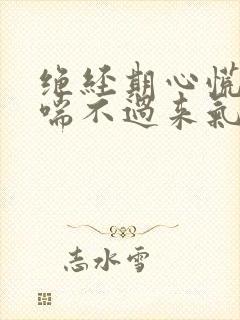 绝经期心慌
喘不过来气
志水雪